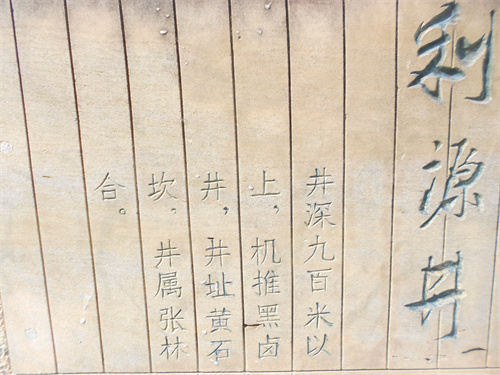 利源井
井深九百米以
上，机推黑卤
井，井址黄石
坎。井属张林
合。